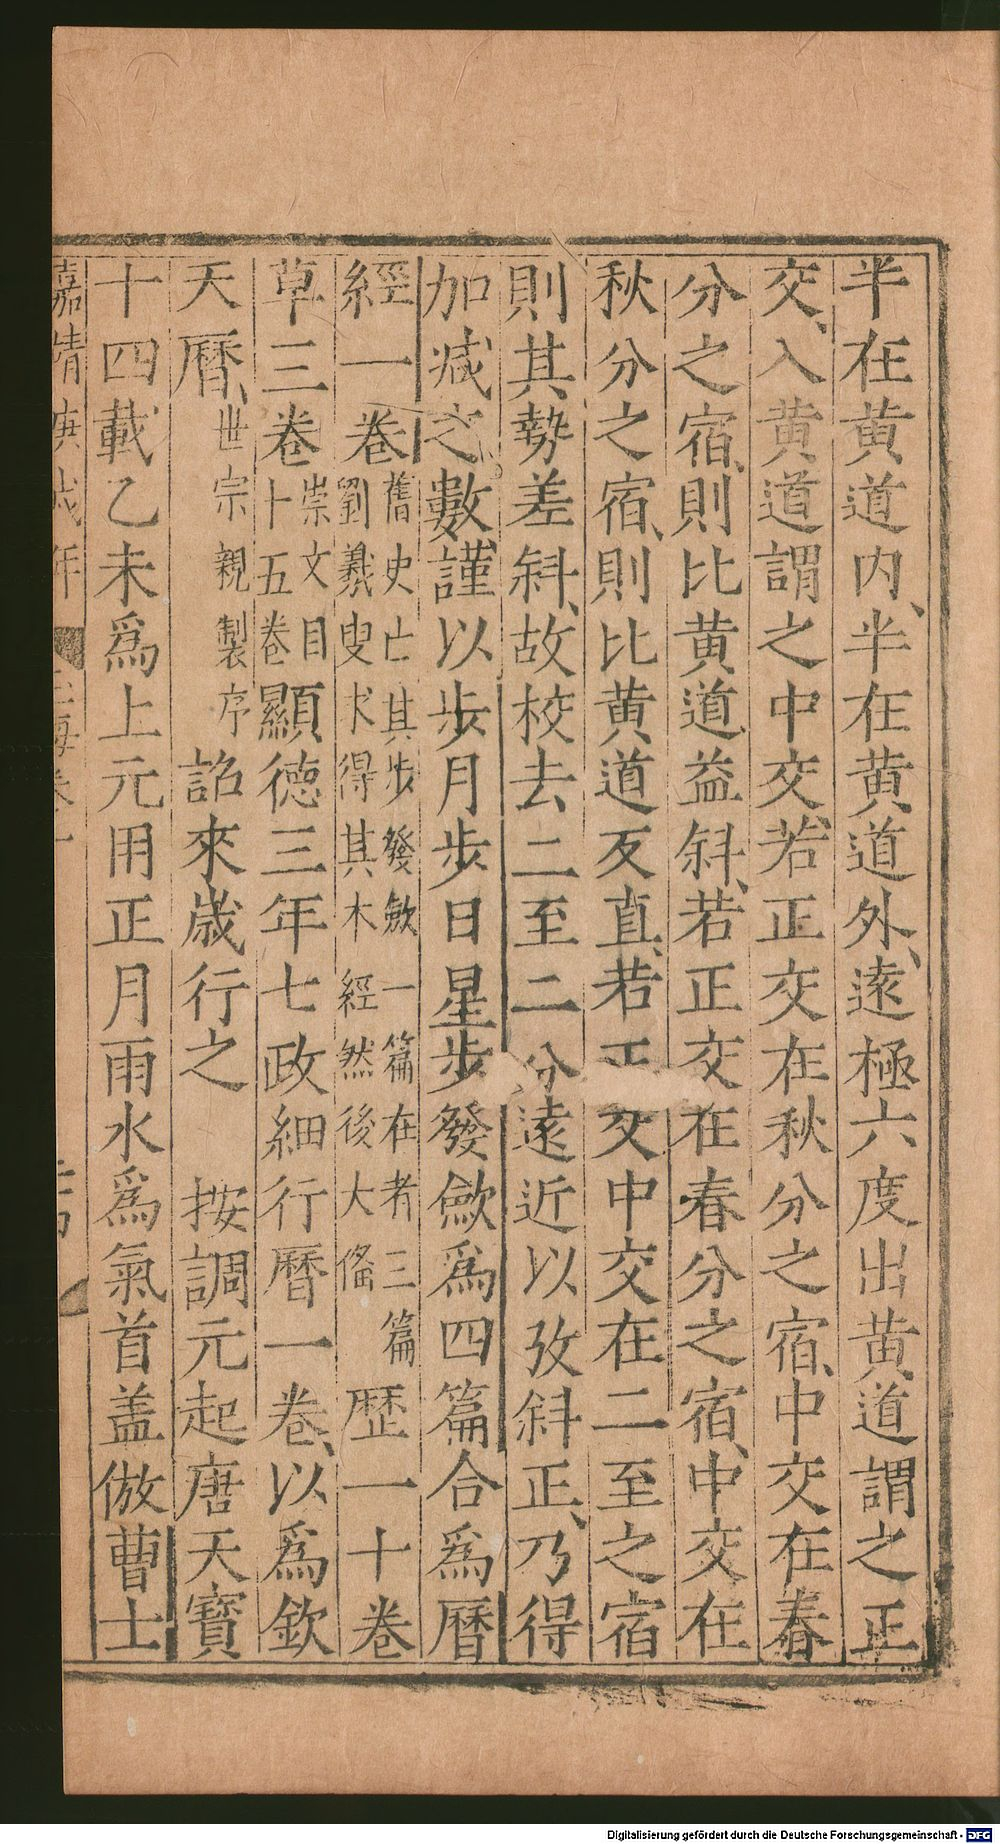 半在黄道内、半在黄道外、逺極六度出黄道謂之正
交、入黄道謂之中交、若正交在秋分之宿、中交在春
分之宿、則比黄道益斜、若正交在春分之宿、中交在
秋分之宿、則比黄道反直、若正交中交在二至之宿
則其勢差斜、故校去二至二分逺近以攷斜正、乃得
加减之數。謹以歩月歩日星歩發歛爲四篇合爲曆
經一卷舊史亡其歩發歛一篇在者三篇
劉羲叟求得其本經然後大俻歷一十卷
草三卷崇文目
十五卷顯徳三年七政細行曆一卷、以爲欽
天曆、世宗親製序詔來歳行之 按調元起唐天寳
十四載乙未爲上元用正月雨水爲氣首盖倣曹士
嘉靖庚戌年
Digitalisierung gefördert durch die Deutsche Forschungsgemeinschaft - DFG